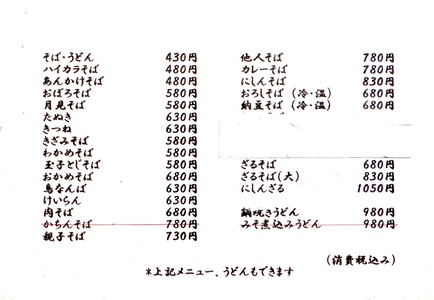 そば・うどん 430円
ハイカラそば 480円
あんかけそば 480円
おぼろそば 580円
月見そば 580円
たぬき 630円
きつね 630円
きざみそば 580円
わかめそば 580円
玉子とじそば 580円
おかめそば 680円
鳥なんば 630円
けいらん 630円
肉そば 680円
かちんそば 780円
親子そば 730円
他人そば 780円
カレーそば 780円
にしんそば 830円
おろしそば（冷・温） 680円
納豆そば（冷・温） 680円
ざるそば 680円
ざるそば（大） 830円
にしんざる 1050円
鍋焼きうどん 980円
みそ煮込みうどん 980円
（消費税込み）
＊上記メニュー、うどんもできます